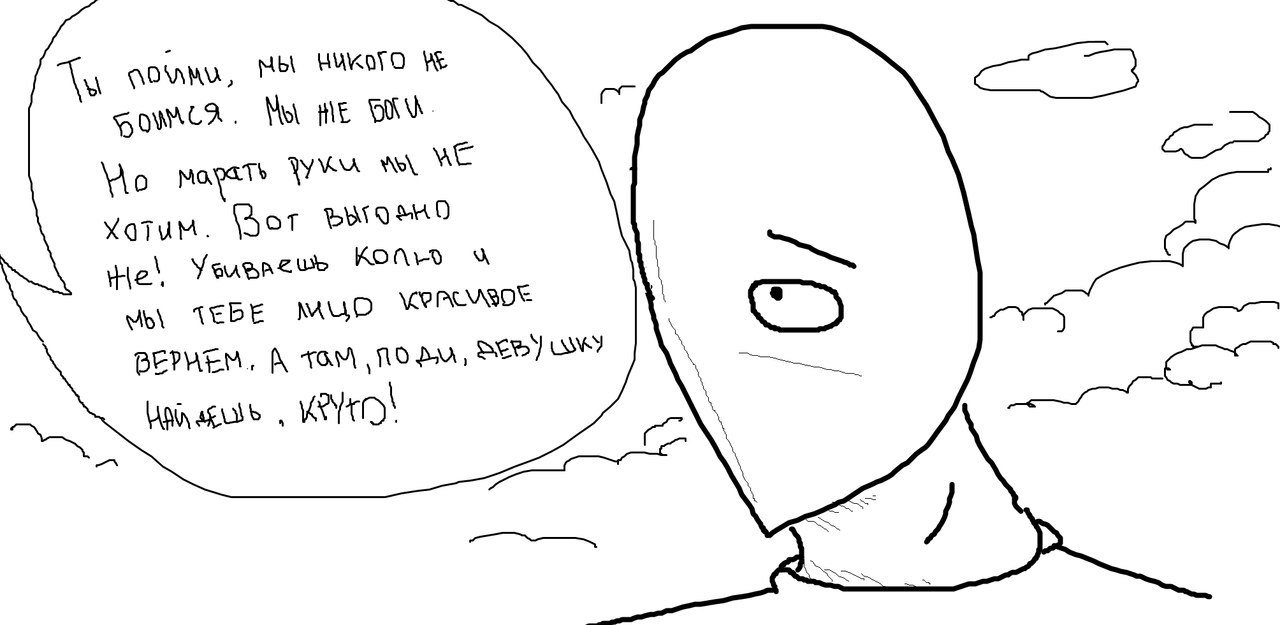 Ты пойми, мы никого не
боимся. Мы же боги.
Но марать руки мы не
хотим. Вот выгодно
же! Убиваешь Колью и
мы тебе лицо красивое
вернем. А там, поди, девушку
найдешь, круто!